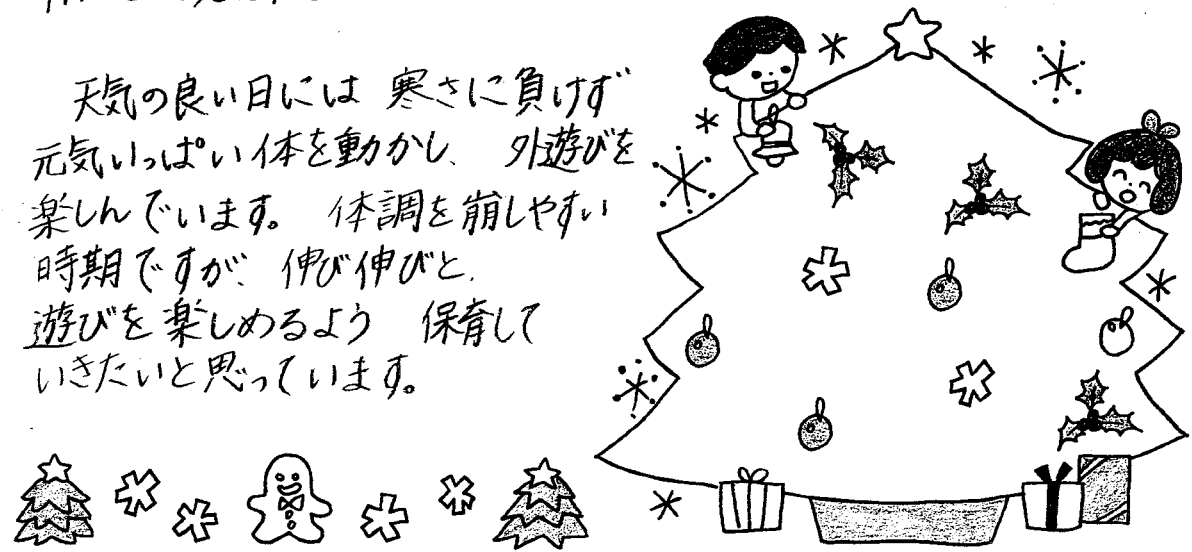 天気の良い日には 寒さに負けず
元気いっぱい体を動かし、 外遊びを
楽しんでいます。 体調を崩しやすい
時期ですが、伸び伸びと、
遊びを楽しめるよう 保育して
いきたいと思っています。